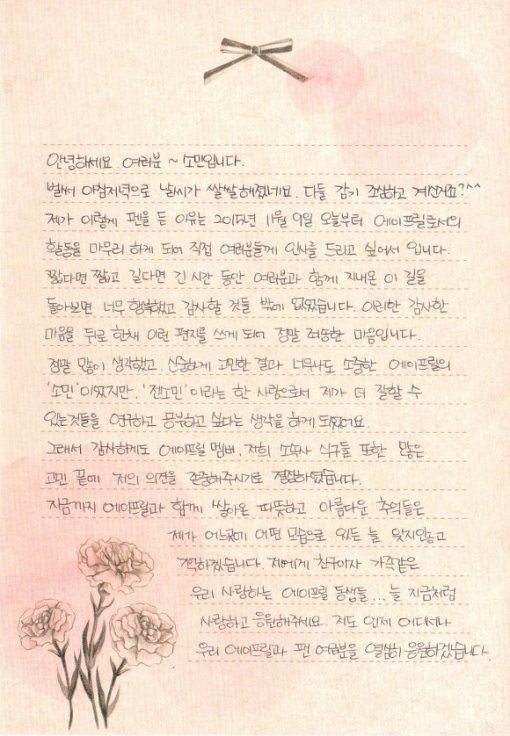 안녕하세요 여러분 ~ 소민입니다.
벌써 아침저녁으로 날씨가 쌀쌀해졌네요. 다들 감기 조심하고 계신가요?^^
제가 이렇게 펜을 든 이유는 2015년 11월 9일 오늘부터 에이프릴로서의
활동을 마무리 하게 되어 직접 여러분들께 인사를 드리고 싶어서 입니다.
짧다면 짧고 길다면 긴 시간 동안 여러분과 함께 지내온 이 길을
돌아보면 너무 행복했고 감사할 것들 밖에 없었습니다. 이러한 감사한
마음을 뒤로 한채 이런 편지를 쓰게 되어 정말 죄송한 마음입니다.
정말 많이 생각했고 신중하게 고민한 결과 너무나도 소중한 에이프릴의
'소민'이었지만, '전소민'이라는 한 사람으로서 제가 더 잘할 수
있는것들을 연구하고 공부하고 싶다는 생각을 하게 되었어요.
그래서 감사하게도 에이프릴 멤버, 저희 소속사 식구들 또한 많은
고민 끝에 저의 의견을 존중해주시기로 결정하였습니다.
지금까지 에이프릴과 함께 쌓아온 따뜻하고 아름다운 추억들은
제가 어느곳에 어떤 모습으로 있든 늘 잊지않고
기억하겠습니다. 저에게 친구이자 가족같은
우리 사랑하는 에이프릴 동생들... 늘 지금처럼
사랑하고 응원해주세요. 저도 언제 어디서나
우리 에이프릴과 팬 여러분을 열심히 응원하겠습니다